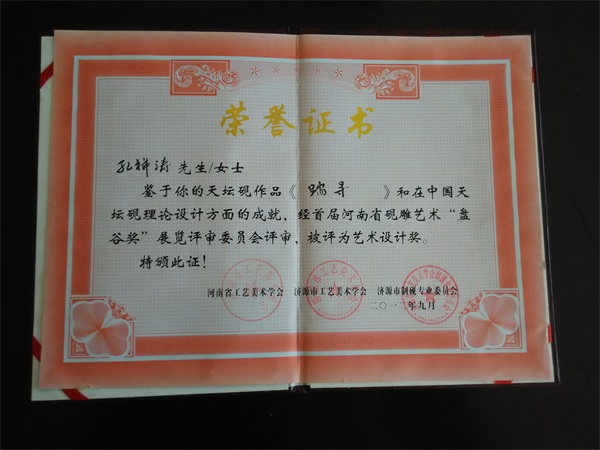 荣誉证书
孔祥涛 先生/女士
鉴于你的天坛砚作品《 》和在中国天
坛砚理论设计方面的成就，经首届河南省砚雕艺术“盘
谷奖”展览评审委员会评审，被评为艺术设计奖。
特颁此证！
河南省工艺美术学会 济源市工艺美术学会 济源市制砚专业委员会
二〇一二年九月